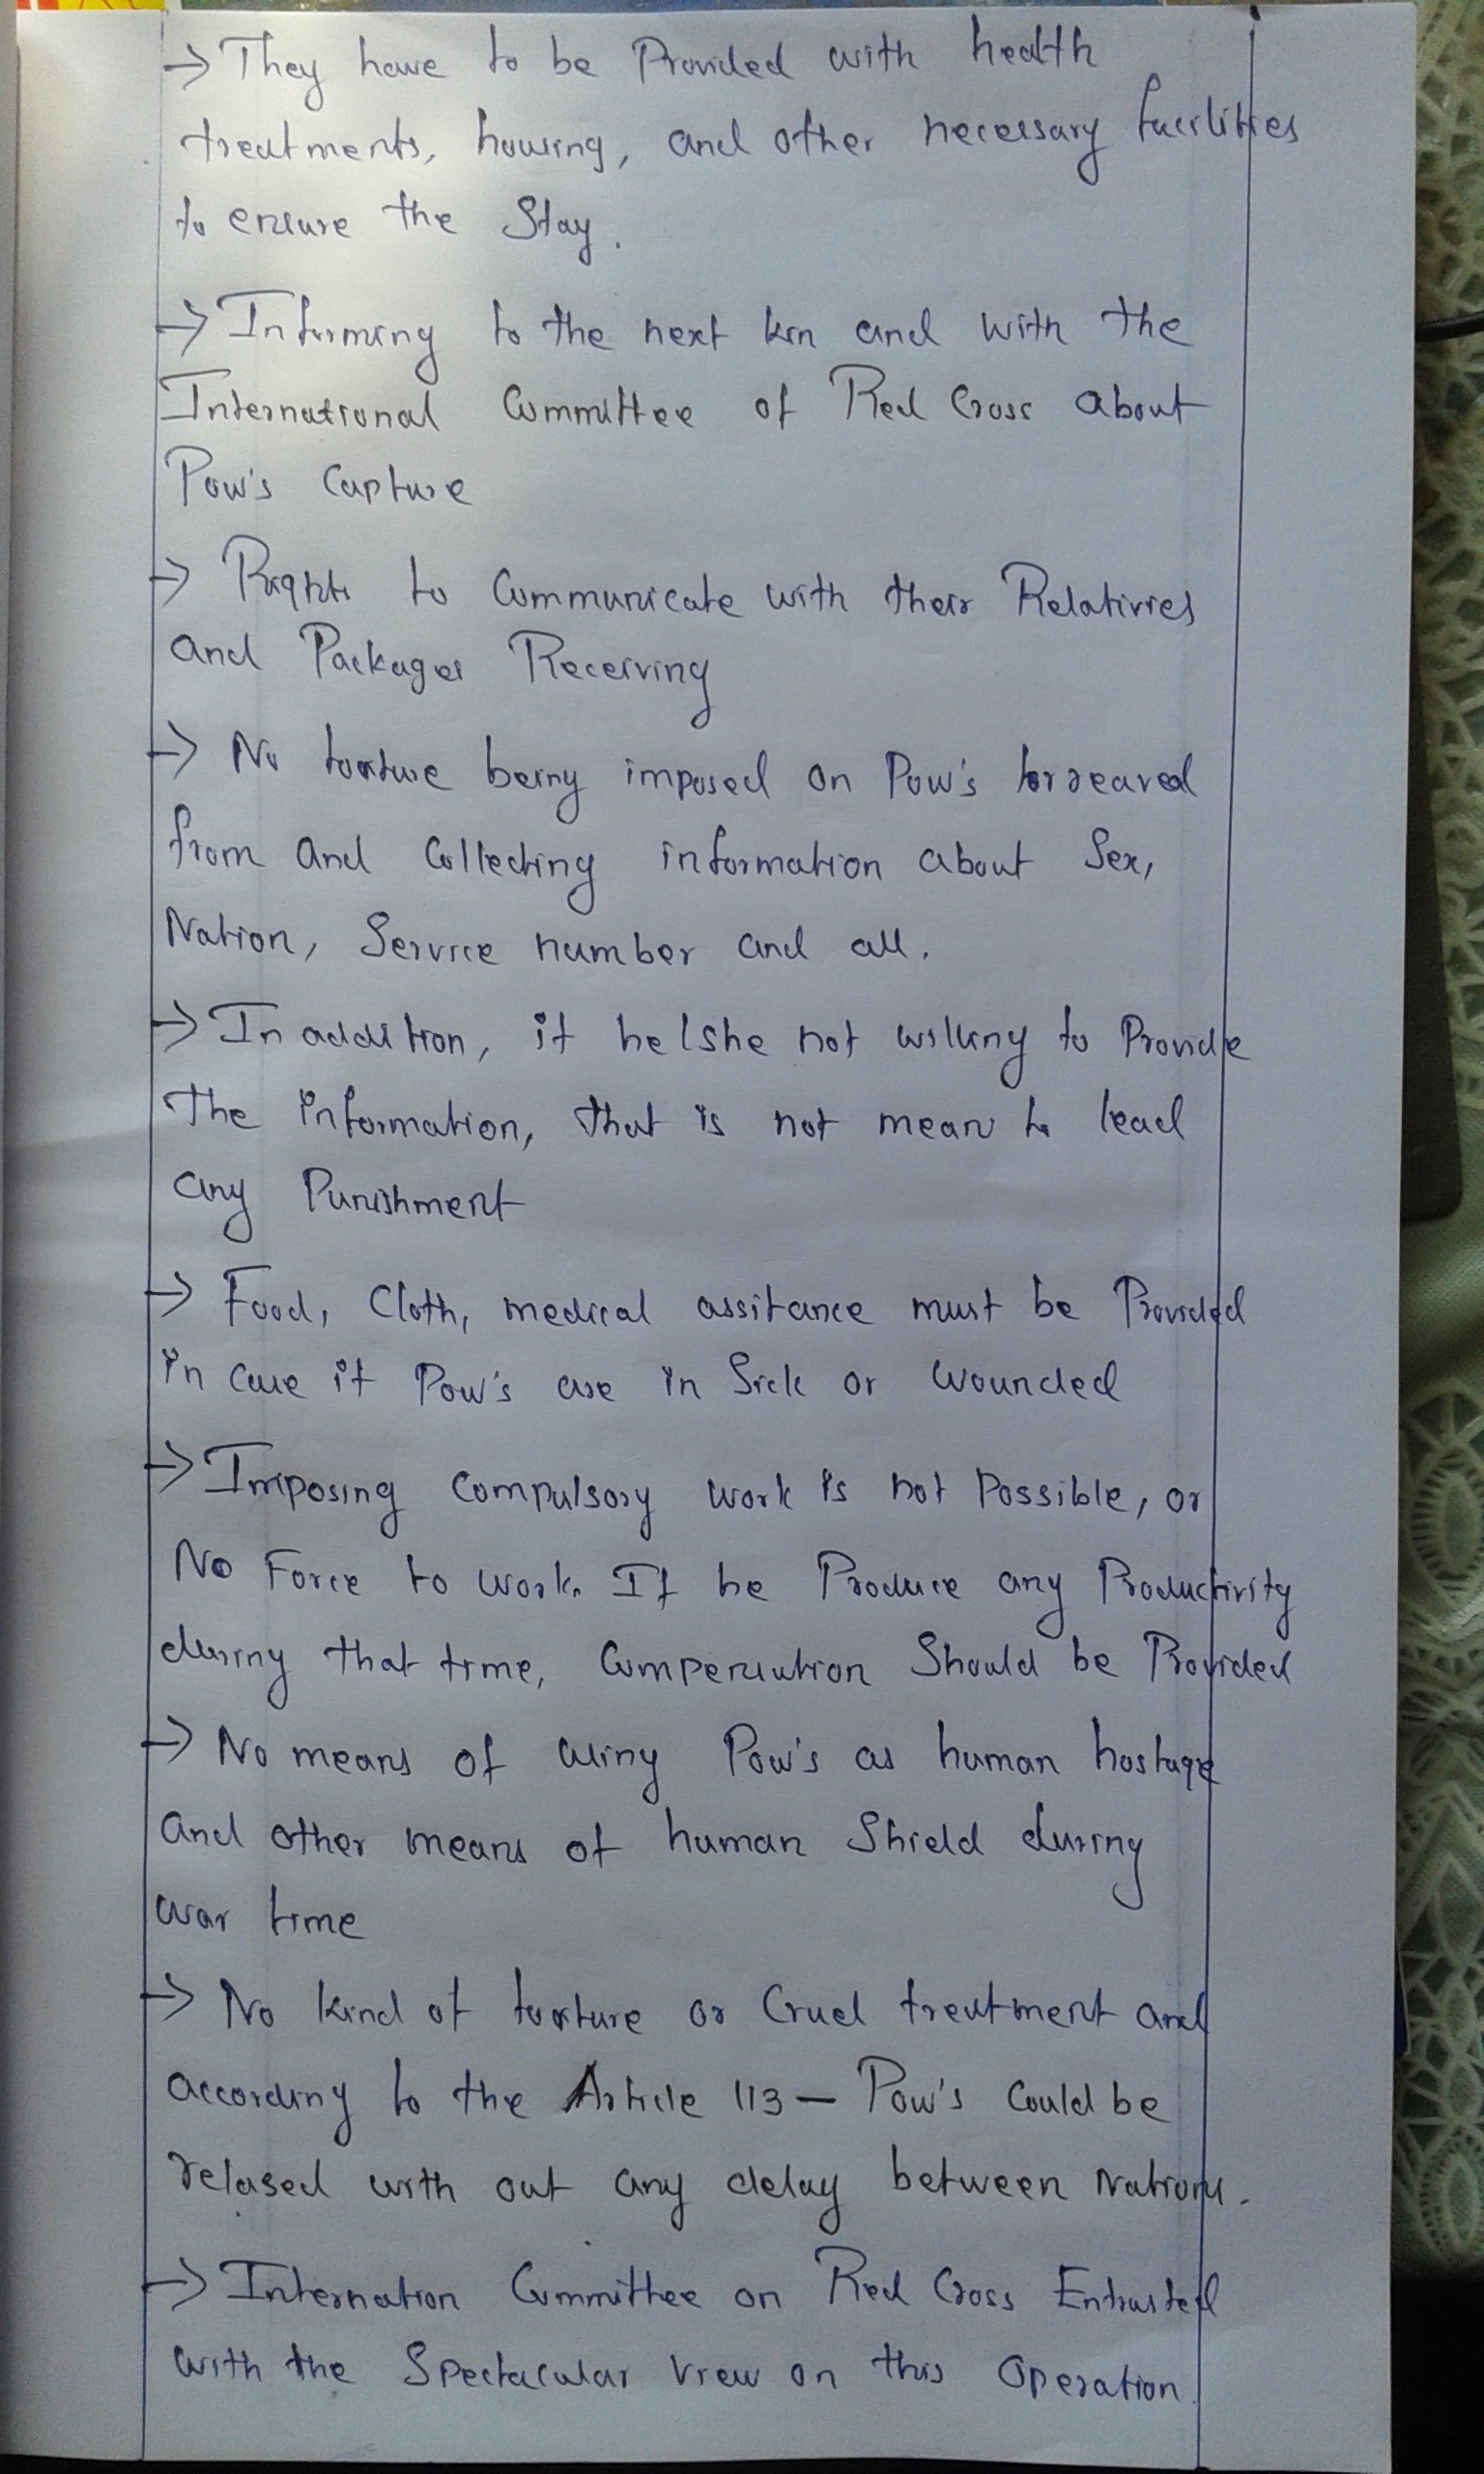 → They have to be Provided with health
treatments, housing, and other necessary facilities
to ensure the Stay.
→ Informing to the next kin and with the
International Committee of Red Cross about
Pow's Capture
→ Rights to Communicate with their Relatives
and Packages Receiving
→ No torture being imposed on Pow's
from and Collecting information about Sex,
Nation, Service number and all.
→ In addition, if he/she not willing to Provide
the information, that is not mean to lead
any Punishment
→ Food, Cloth, medical assitance must be Provided
in case if Pow's are in Sick or wounded
→ Imposing Compulsory work is not Possible, or
No Force to work. If he Produce any Productivity
during that time, Compensation Should be Provided
→ No means of using Pow's as human hostage
and other means of human Shield during
war time
→ No kind of torture or Cruel treatment and
according to the Article 113 — Pow's Could be
relased with out any delay between Nations.
→ Internation Committee on Red Cross Entrusted
with the Spectacular View on this Operation.